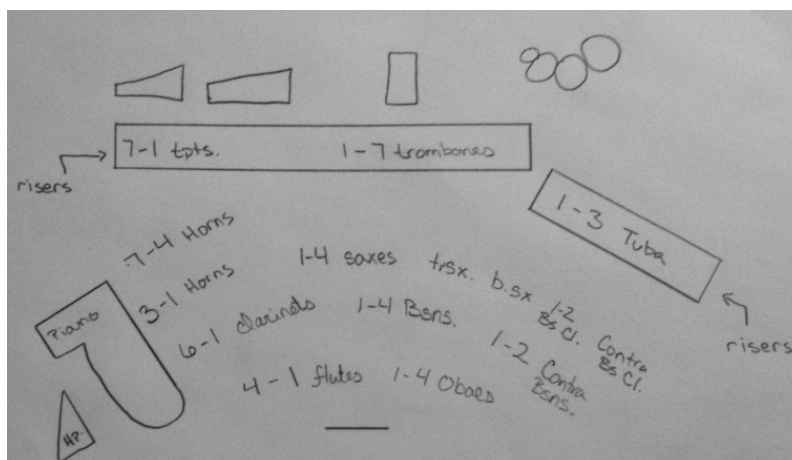 7-1 tpts.
1-7 trombones
risers
1-3 Tuba
7-4 Horns
3-1 Horns
1-4 saxes
trsx.
b.sx
1-2
Bs Cl.
Contra
Bs Cl.
risers
Piano
6-1 Clarinets
1-4 Bsns.
1-2 Contra
Bsns.
4-1 flutes
1-4 Oboes
HP.